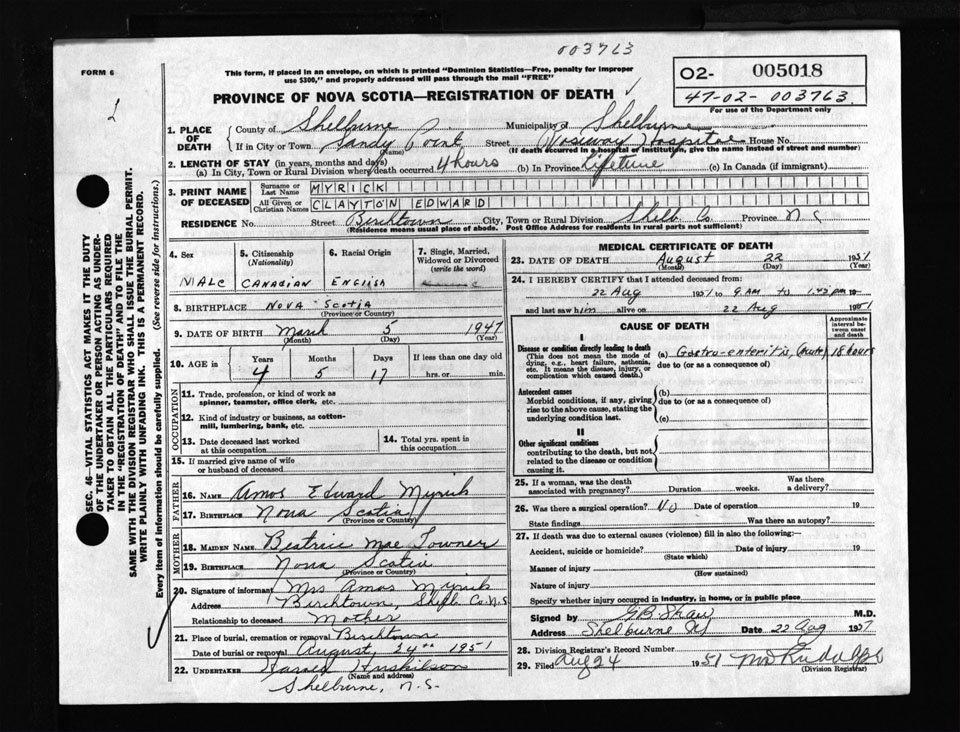 003763
FORM 6
This form, if placed in an envelope, on which is printed "Dominion Statistics—Free, penalty for improper
use $300," and properly addressed will pass through the mail "FREE"
O2- 005018
47-02-003763
For use of the Department only
PROVINCE OF NOVA SCOTIA—REGISTRATION OF DEATH
1. PLACE OF DEATH County of Shelburne Municipality of Shelburne
If in City or Town Sandy Point Street Hospital House No.
(Name) (If death occurred in a hospital or institution, give the name instead of street and number)
2. LENGTH OF STAY (in years, months and days)
(a) In City, Town or Rural Division where death occurred 4 hours (b) In Province Lifetime (c) In Canada (if immigrant)
3. PRINT NAME OF DECEASED Surname or Last Name MYRICK
All Given or Christian Names CLAYTON EDWARD
RESIDENCE No. Street Birchtown City, Town or Rural Division Shelb. Co. Province N.S.
(Residence means usual place of abode. Post Office Address for residents in rural parts not sufficient)
4. Sex MALE
5. Citizenship (Nationality) CANADIAN
6. Racial Origin ENGLISH
7. Single, Married, Widowed or Divorced (write the word)
8. BIRTHPLACE NOVA SCOTIA
(Province or Country)
9. DATE OF BIRTH March 5 1947
(Month) (Day) (Year)
10. AGE in Years Months Days If less than one day old
4 5 17 hrs. or min.
OCCUPATION
11. Trade, profession, or kind of work as
spinner, teamster, office clerk, etc.
12. Kind of industry or business, as cotton-
mill, lumbering, bank, etc.
13. Date deceased last worked
at this occupation
14. Total yrs. spent in
this occupation
15. If married give name of wife
or husband of deceased
FATHER
16. NAME Amos Edward Myrick
17. BIRTHPLACE Nova Scotia
(Province or Country)
MOTHER
18. MAIDEN NAME Beatrice Mae Towner
19. BIRTHPLACE Nova Scotia
(Province or Country)
20. Signature of informant Mrs Amos Myrick
Address Birchtown, Shelb. Co. N.S.
Relationship to deceased Mother
21. Place of burial, cremation or removal Birchtown
Date of burial or removal August, 24th 1951
22. UNDERTAKER Harold Huskilson
(Name and address)
Shelburne, N.S.
MEDICAL CERTIFICATE OF DEATH
23. DATE OF DEATH August 22 1951
(Month) (Day) (Year)
24. I HEREBY CERTIFY that I attended deceased from:
22 Aug 1951 9 AM to 1951
and last saw him alive on 22 Aug
CAUSE OF DEATH
Approximate interval between onset and death
I
Disease or condition directly leading to death
(This does not mean the mode of
dying, e.g., heart failure, asthenia,
etc. It means the disease, injury, or
complication which caused death.)
(a) Gastro-enteritis, (acute) 18 hours
due to (or as a consequence of)
Antecedent causes
Morbid conditions, if any, giving
rise to the above cause, stating the
underlying condition last.
(b)
due to (or as a consequence of)
(c)
II
Other significant conditions
contributing to the death, but not
related to the disease or condition
causing it.
25. If a woman, was the death
associated with pregnancy? Duration weeks. Was there
a delivery?
26. Was there a surgical operation? NO Date of operation 19
State findings Was there an autopsy?
27. If death was due to external causes (violence) fill in also the following:—
Accident, suicide or homicide? Date of injury 19
(State which)
Manner of injury
(How sustained)
Nature of injury
Specify whether injury occurred in industry, in home, or in public place
Signed by G.B. Shaw M.D.
Address Shelburne NS Date 22 Aug 1951
28. Division Registrar's Record Number
29. Filed Aug 24 1951
(Division Registrar)
SEC. 46—VITAL STATISTICS ACT MAKES IT THE DUTY
OF THE UNDERTAKER OR PERSON ACTING AS UNDER-
TAKER TO OBTAIN ALL THE PARTICULARS REQUIRED
IN THE "REGISTRATION OF DEATH" AND TO FILE THE
SAME WITH THE DIVISION REGISTRAR WHO SHALL ISSUE THE BURIAL PERMIT.
WRITE PLAINLY WITH UNFADING INK. THIS IS A PERMANENT RECORD.
Every item of information should be carefully supplied. (See reverse side for instructions.)